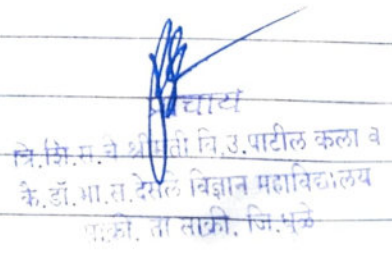 प्राचार्य
वि.शि.म.चे श्रीमती वि.उ.पाटील कला व
कै.डॉ.भा.त.देसले विज्ञान महाविद्यालय
साक्री. ता साक्री. जि.धुळे